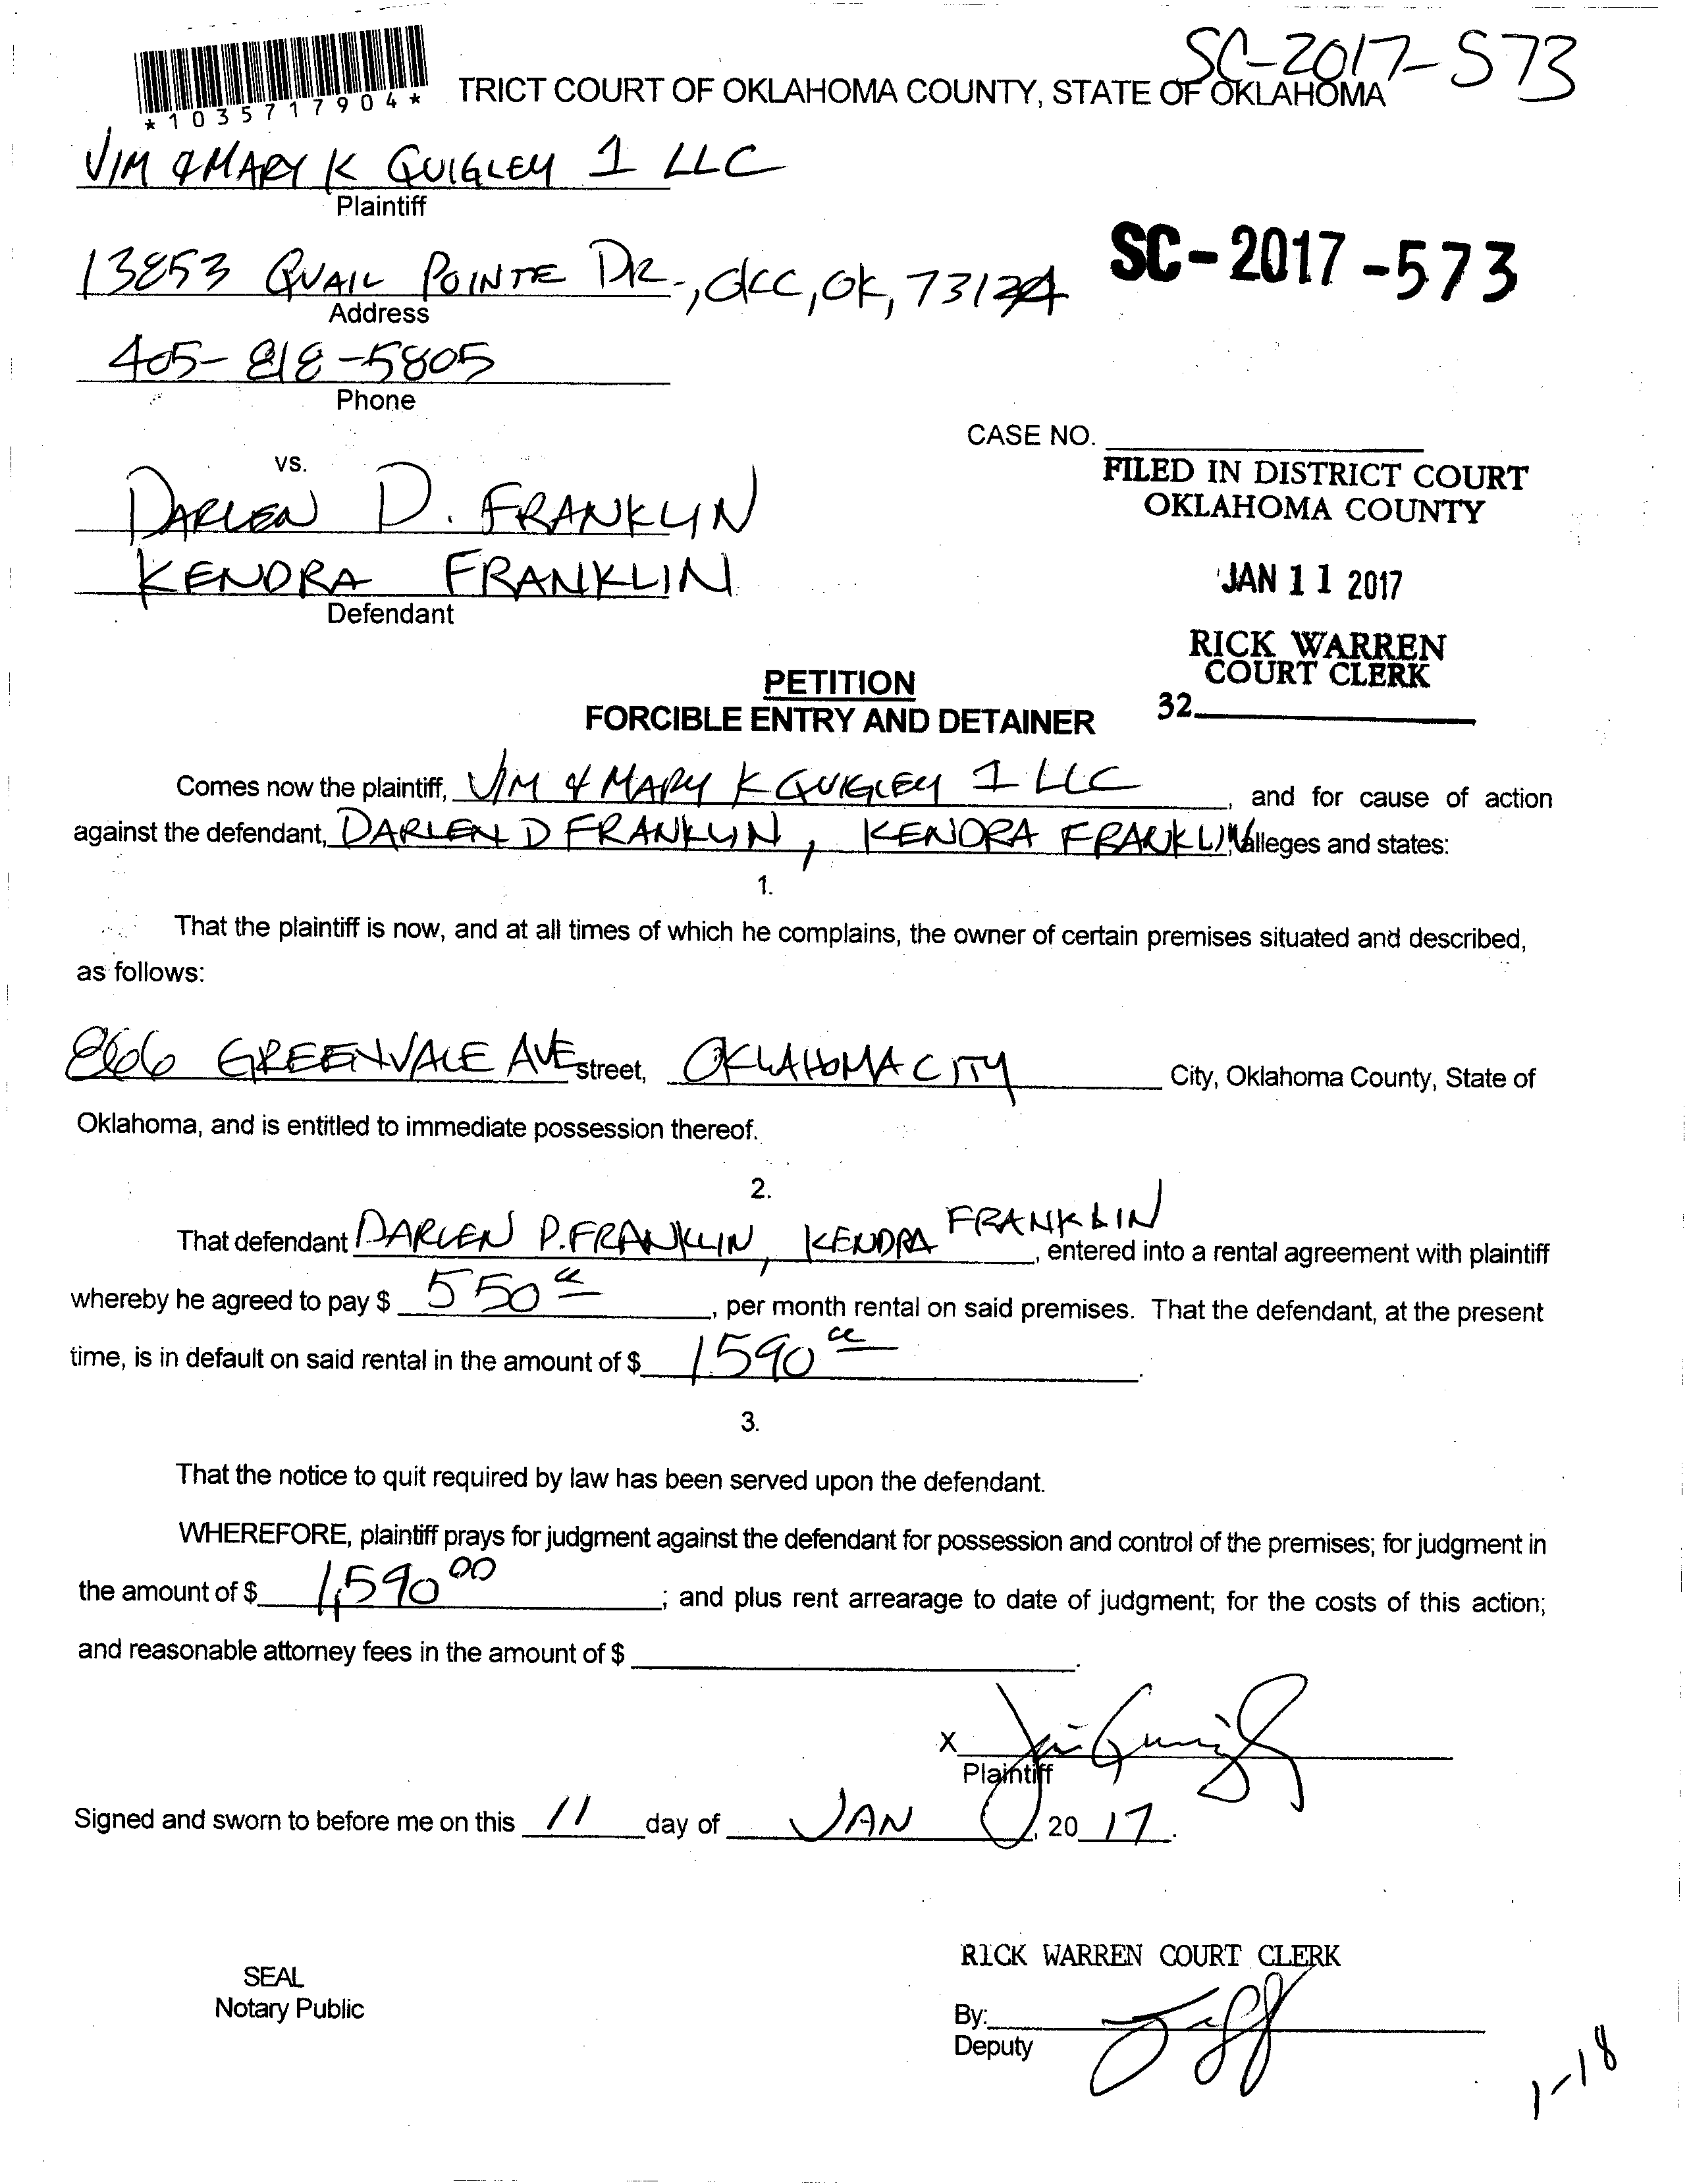 SC-2017-573
*1035717904*
TRICT COURT OF OKLAHOMA COUNTY, STATE OF OKLAHOMA
JIM & MARY K QUIGLEY 1 LLC
Plaintiff
13853 QUAIL POINTE DR., OKC, OK, 73134
Address
SC-2017-573
405-818-5805
Phone
CASE NO.
vs.
FILED IN DISTRICT COURT
OKLAHOMA COUNTY
DARLEN D. FRANKLIN
KENDRA FRANKLIN
Defendant
JAN 11 2017
RICK WARREN
COURT CLERK
32
PETITION
FORCIBLE ENTRY AND DETAINER
Comes now the plaintiff, JIM & MARY K QUIGLEY 1 LLC, and for cause of action
against the defendant, DARLEN D FRANKLIN, KENDRA FRANKLIN, alleges and states:
1.
That the plaintiff is now, and at all times of which he complains, the owner of certain premises situated and described,
as follows:
866 GREENVALE AVE street, OKLAHOMA CITY City, Oklahoma County, State of
Oklahoma, and is entitled to immediate possession thereof.
2.
That defendant DARLEN D. FRANKLIN, KENDRA FRANKLIN, entered into a rental agreement with plaintiff
whereby he agreed to pay $ 550 00, per month rental on said premises. That the defendant, at the present
time, is in default on said rental in the amount of $ 1590 00.
3.
That the notice to quit required by law has been served upon the defendant.
WHEREFORE, plaintiff prays for judgment against the defendant for possession and control of the premises; for judgment in
the amount of $ 1,590 00; and plus rent arrearage to date of judgment; for the costs of this action;
and reasonable attorney fees in the amount of $.
X
Plaintiff
Signed and sworn to before me on this 11 day of JAN, 20 17.
RICK WARREN COURT CLERK
SEAL
Notary Public
By:
Deputy
1-18